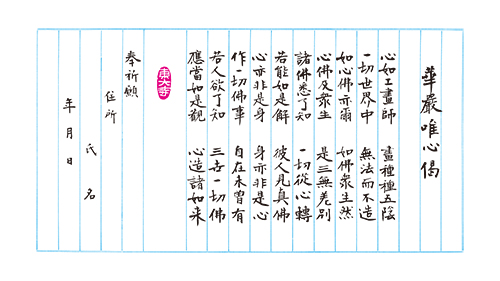 華嚴唯心偈
心如工畫師 畫種種五陰
一切世界中 無法而不造
如心佛亦爾 如佛衆生然
心佛及衆生 是三無差別
諸佛悉了知 一切從心轉
若能如是解 彼人見真佛
心亦非是身 身亦非是心
作一切佛事 自在未曾有
若人欲了知 三世一切佛
應當如是觀 心造諸如来
東大寺
奉祈願
住所
氏名
年月日